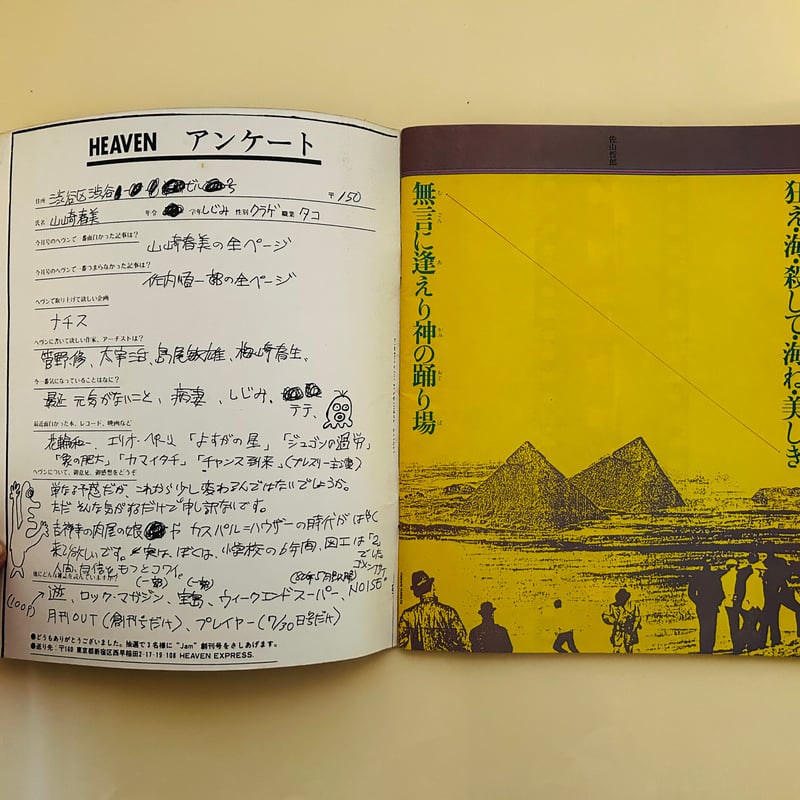 HEAVEN アンケート
住所 渋谷区渋谷 ビル 号 〒150
氏名 山崎春美 年令 学年 しじみ 性別 クラゲ 職業 タコ
今月号のヘヴンで一番面白かった記事は?
山崎春美の全ページ
今月号のヘヴンで一番つまらなかった記事は?
佐内順一郎の全ページ
ヘヴンで取り上げて欲しい企画
ナチス
ヘヴンに書いて欲しい作家、アーチストは?
菅野修、太宰治、島尾敏雄、梅崎春生、
今一番気になっていることはなに?
最近 元気がないこと、病妻、しじみ、
テテ、
最近面白かった本、レコード、映画など
花輪和一、エリオ・ペトリ、「よすがの星」「ジュゴンの過労」
「家の肥大」「カマイタチ」「チャンス到来」(プレスリー主演)
ヘヴンについて、御意見、御感想をどうぞ
単なる予感だが、これから少し変わるんではないでしょうか。
ただそんな気がするだけで申し訳ないです。
吉祥寺の肉屋の娘 や カスパル=ハウザーの時代がはやく
来て欲しいです。*実は、ぼくは、小学校の6年間、図工は「2」
でした
ゴメンナサイ
人間、自信をもつとコワイ。
他にどんな雑誌を読んでいますか?
(一部) (一部) ('82年5月以降)
(100P) 遊、ロック・マガジン、宝島、ウィークエンドスーパー、NOISE
月刊OUT(創刊号だけ)、プレイヤー(7/30日号だけ)
●どうもありがとうございました。抽選で3名様に"Jam"創刊号をさしあげます。
●送り先:〒160 東京都新宿区西早稲田2-17-19-108 HEAVEN EXPRESS.
佐山哲郎
狂え・海・殺して・海ね・美しき
無言に逢えり神の踊り場